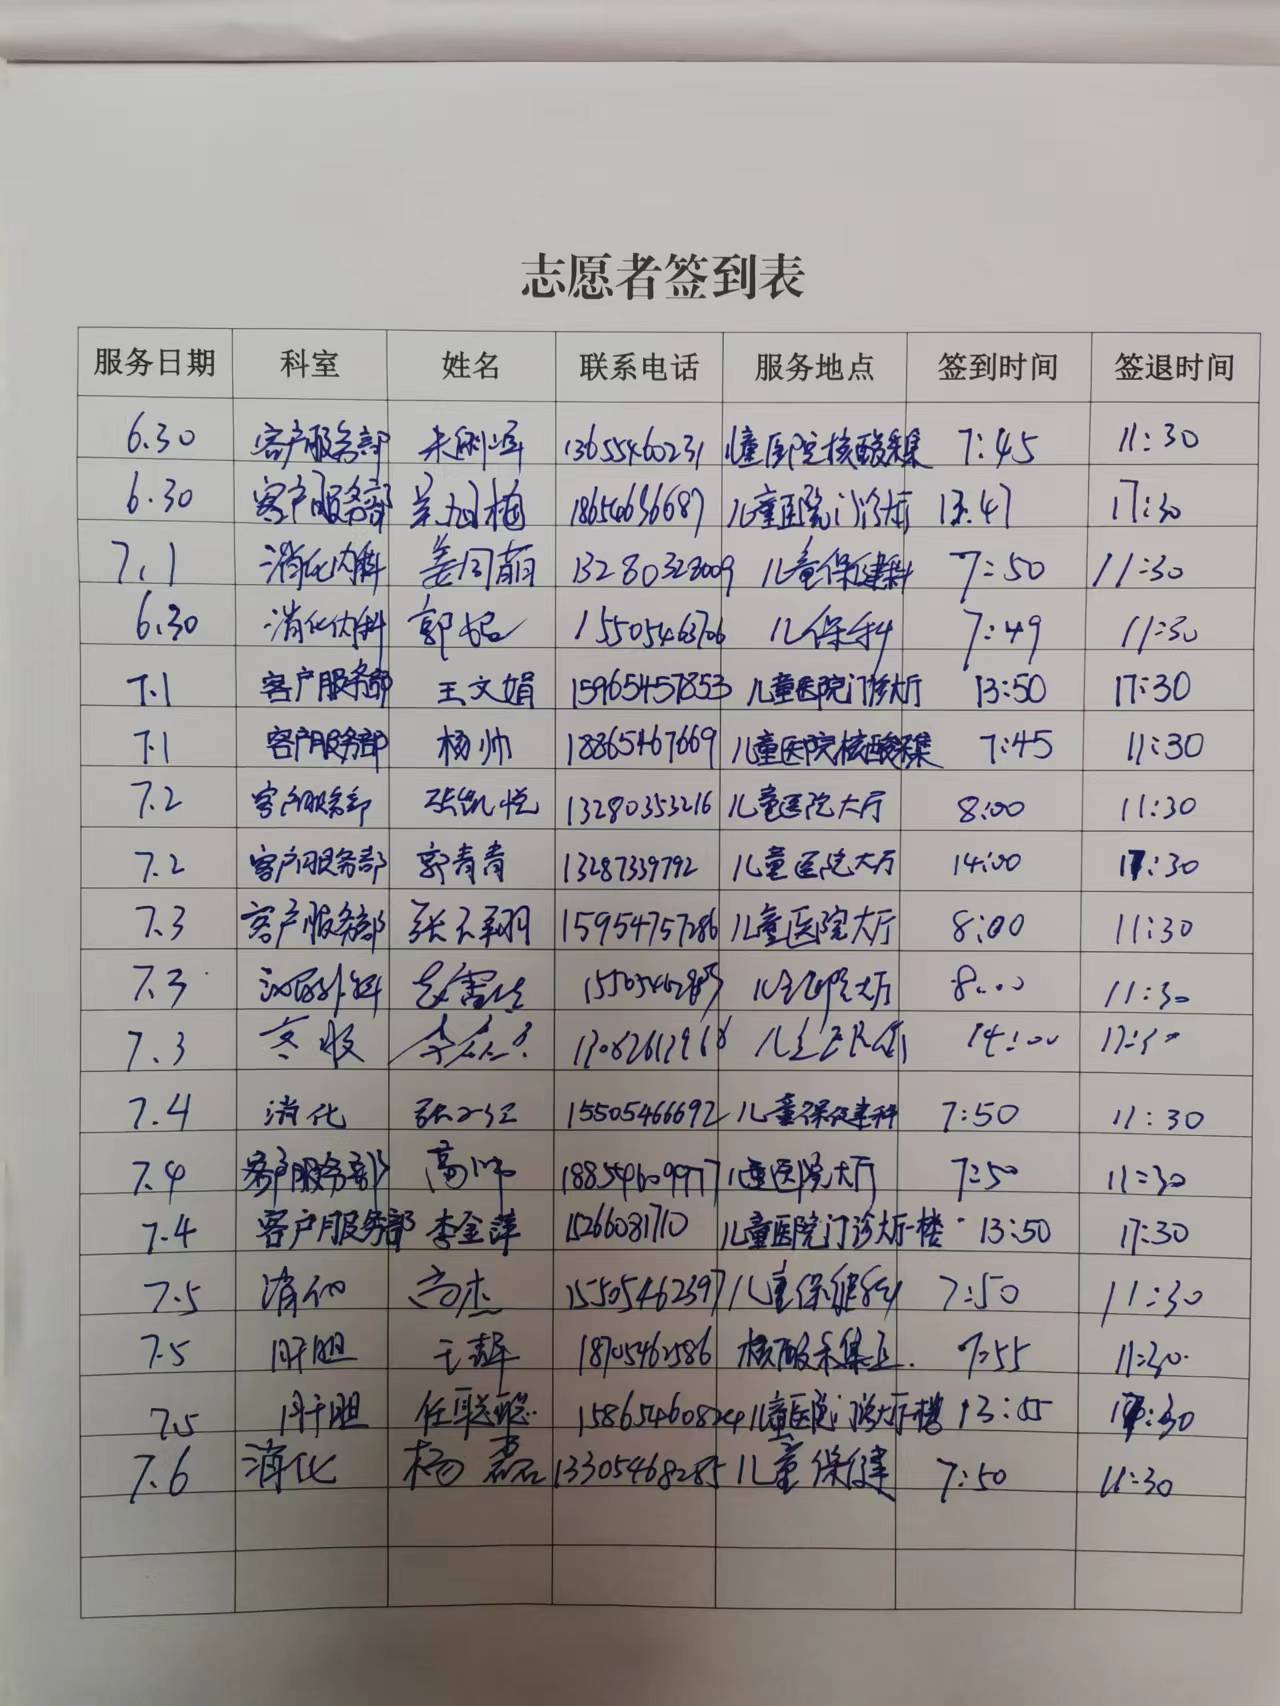 志愿者签到表
服务日期 科室 姓名 联系电话 服务地点 签到时间 签退时间
6.30 客户服务部 13655460231 儿童医院核酸采集 7:45 11:30
6.30 客户服务部 18654636687 儿童医院门诊大厅 13:47 17:30
7.1 消化内科 姜同萌 13280328009 儿童保健科 7:50 11:30
6.30 消化内科 郭 15505463706 儿保科 7:49 11:30
7.1 客户服务部 王文娟 15965457853 儿童医院门诊大厅 13:50 17:30
7.1 客户服务部 杨帅 18865467669 儿童医院核酸采集 7:45 11:30
7.2 客户服务部 张凯悦 13280353216 儿童医院大厅 8:00 11:30
7.2 客户服务部 郭青青 13287339792 儿童医院大厅 14:00 17:30
7.3 客户服务部 张天翔 15954757286 儿童医院大厅 8:00 11:30
7.3 泌尿外科 儿童医院大厅 8:00 11:30
7.3 14:00 17:30
7.4 消化 15505466692 儿童保健科 7:50 11:30
7.4 客户服务部 高帅 18854609977 儿童医院大厅 7:50 11:30
7.4 客户服务部 李金萍 15266081710 儿童医院门诊大厅一楼 13:50 17:30
7.5 消化 高杰 15505462397 儿童保健科 7:50 11:30
7.5 肝胆 18705462586 核酸采集 7:55 11:30
7.5 肝胆 任聪聪 15865460824 儿童医院门诊大厅一楼 13:55 17:30
7.6 消化 杨磊 13305468285 儿童保健 7:50 11:30